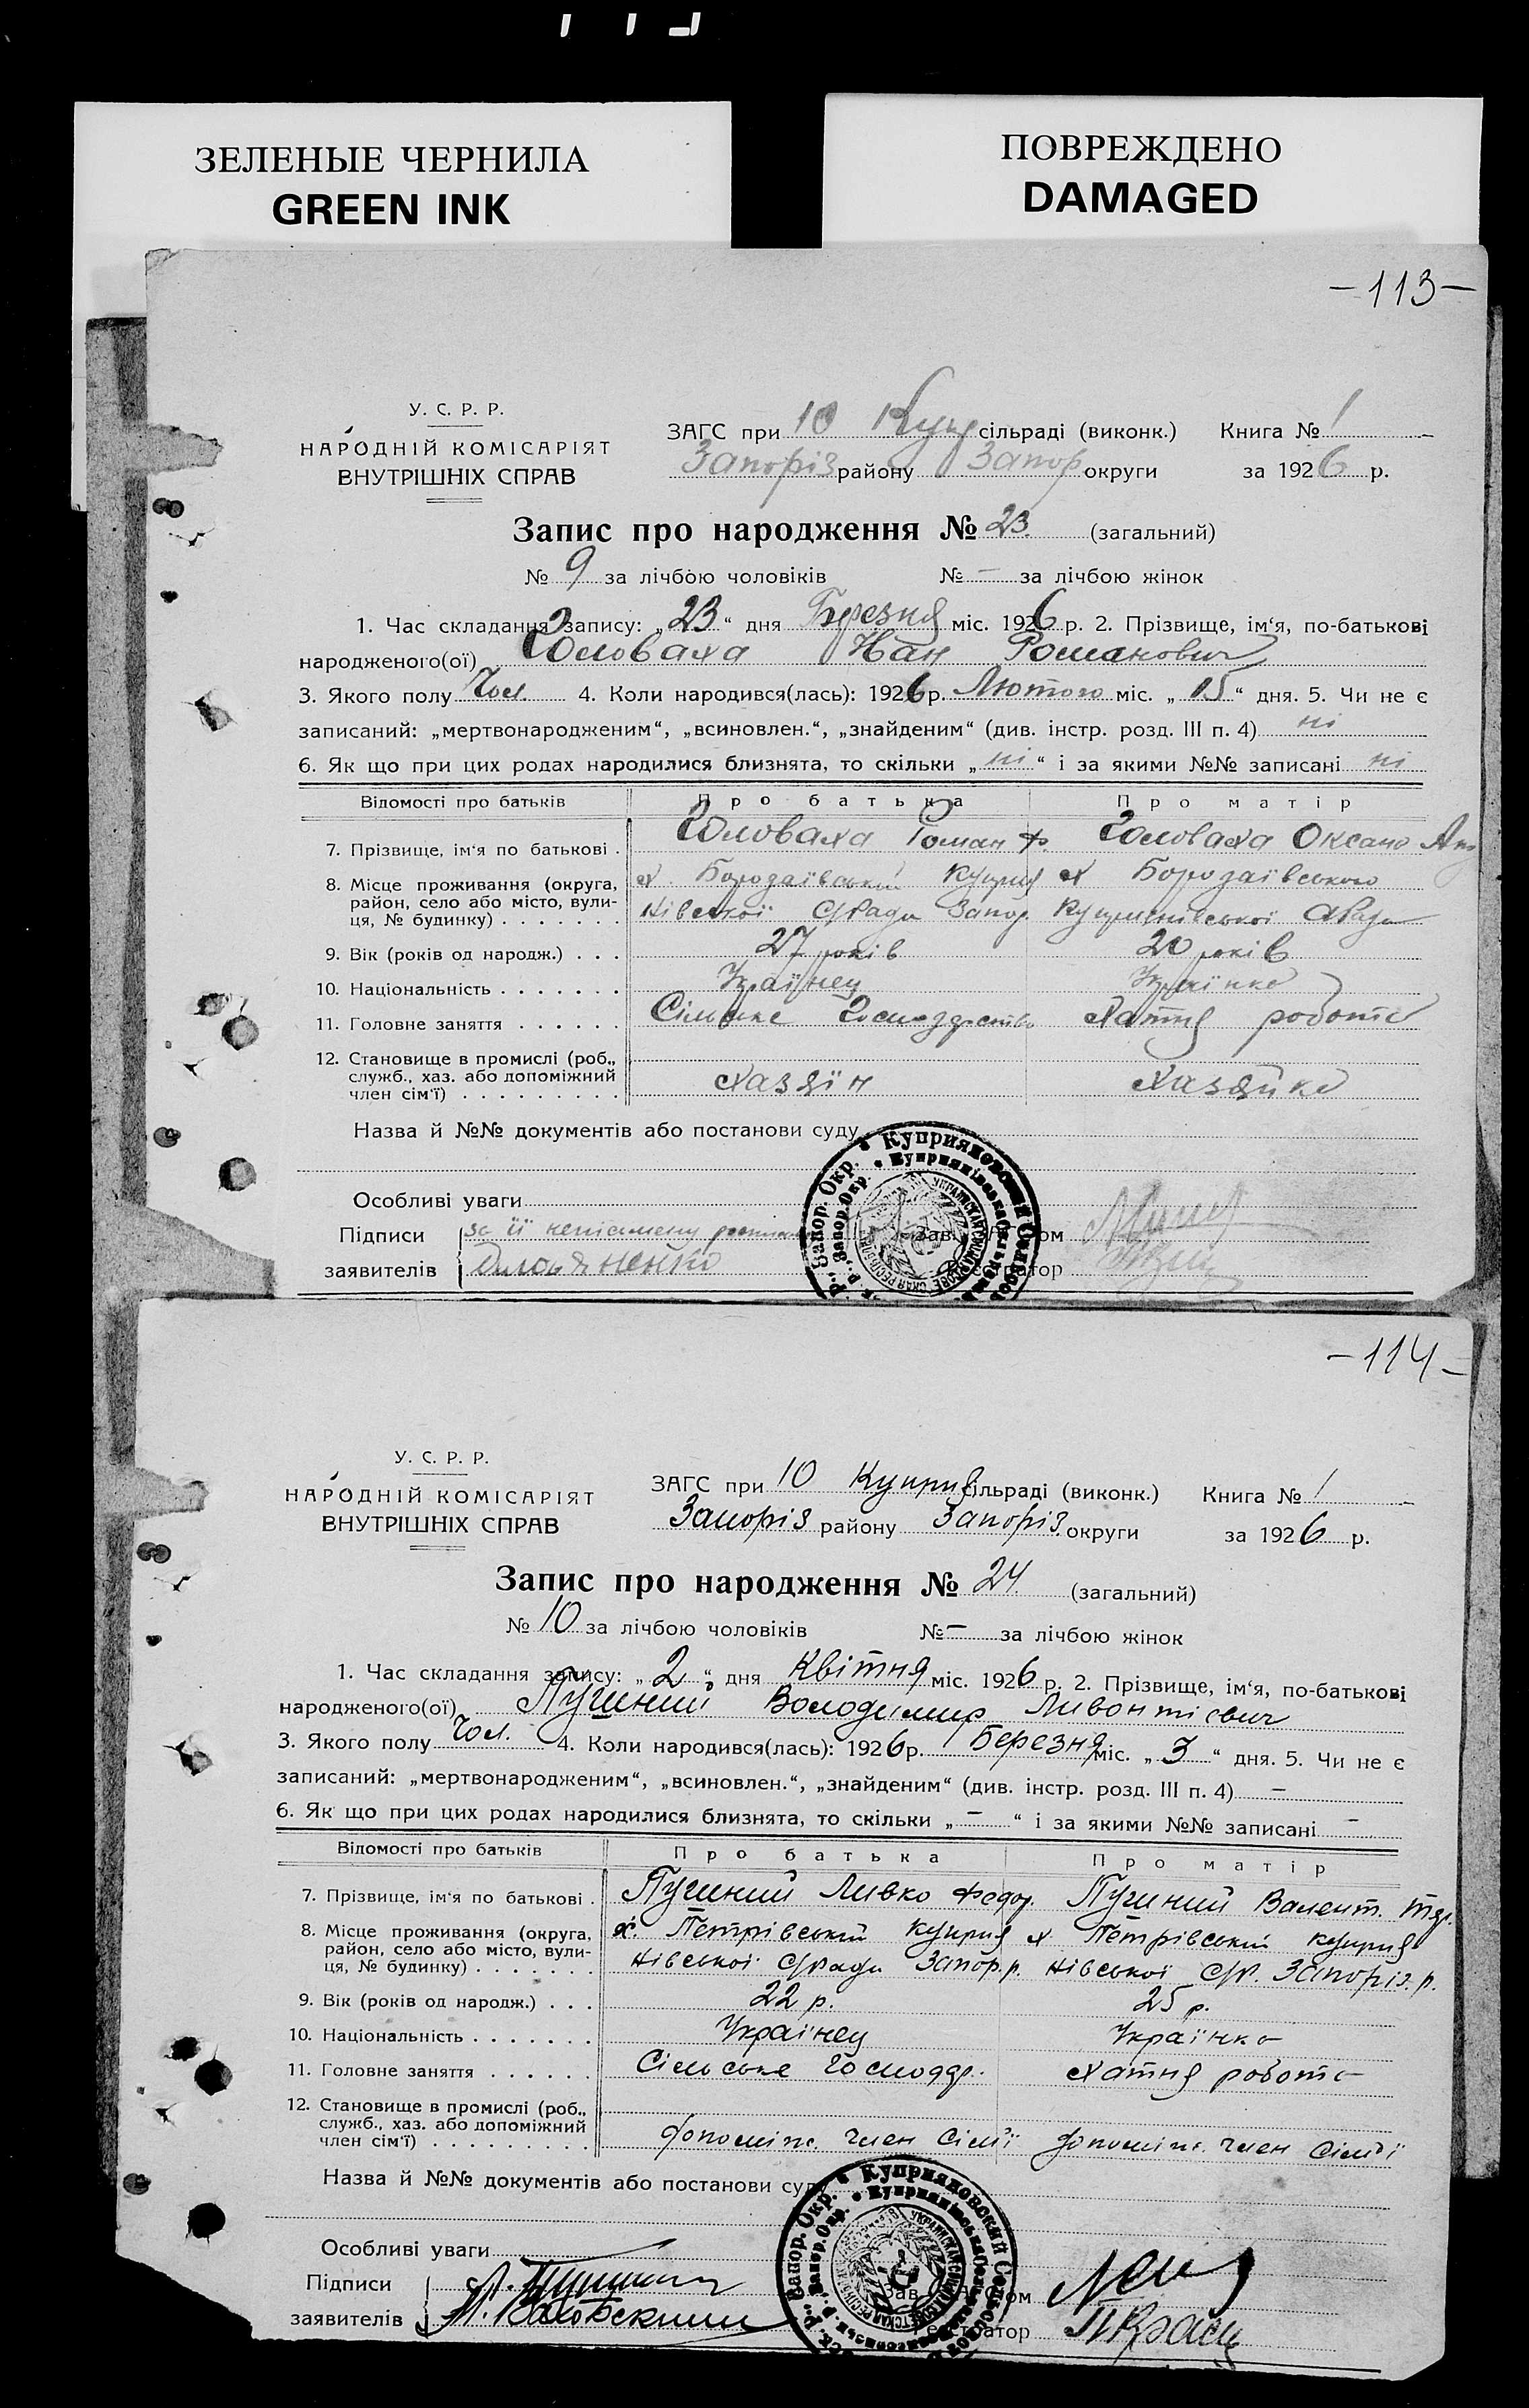 ЗЕЛЕНЫЕ ЧЕРНИЛА
GREEN INK
ПОВРЕЖДЕНО
DAMAGED
—113—
У. С. Р. Р.
НАРОДНІЙ КОМІСАРІЯТ
ВНУТРІШНІХ СПРАВ
ЗАГС при 10 Купр сільраді (виконк.) Книга № 1
Запоріз району Запор округи за 1926 р.
Запис про народження № 23. (загальний)
№ 9 за лічбою чоловіків № — за лічбою жінок
1. Час складання запису: „23“ дня Березня міс. 1926 р. 2. Прізвище, ім‘я, по-батькові
народженого(ої) Головаха Іван Романович
3. Якого полу Чол. 4. Коли народився(лась): 1926 р. Лютого міс. „15“ дня. 5. Чи не є
записаний: „мертвонародженим“, „всиновлен.“, „знайденим“ (див. інстр. розд. III п. 4) ні
6. Як що при цих родах народилися близнята, то скільки „ні“ і за якими №№ записані ні
Відомості про батьків Про батька Про матір
7. Прізвище, ім‘я по батькові . Головаха Роман Ф. Головаха Оксана
8. Місце проживання (округа, х. Бородаївський Куприя х Бородаївського
район, село або місто, вули- нівської С/Ради Запор. Куприянівської С/Ради
ця, № будинку) . . . . . . .
9. Вік (років од народж.) . . . 27 років 20 років
10. Національність . . . . . . . Українец Українка
11. Головне заняття . . . . . . Сільське Господарство Хатня робота
12. Становище в промислі (роб.,
служб., хаз. або допоміжний Хазяїн Хазяйка
член сім‘ї) . . . . . . . . .
Назва й №№ документів або постанови суду
Особливі уваги
Підписи за її неписьмену
заявителів
Зав. ЗАГСом
Реєстратор
—114—
У. С. Р. Р.
НАРОДНІЙ КОМІСАРІЯТ
ВНУТРІШНІХ СПРАВ
ЗАГС при 10 Куприя сільраді (виконк.) Книга № 1
Запоріз району Запоріз. округи за 1926 р.
Запис про народження № 24 (загальний)
№ 10 за лічбою чоловіків № — за лічбою жінок
1. Час складання запису: „2“ дня Квітня міс. 1926 р. 2. Прізвище, ім‘я, по-батькові
народженого(ої) Володимир Ливонтієвич
3. Якого полу Чол. 4. Коли народився(лась): 1926 р. Березня міс. „3“ дня. 5. Чи не є
записаний: „мертвонародженим“, „всиновлен.“, „знайденим“ (див. інстр. розд. III п. 4) —
6. Як що при цих родах народилися близнята, то скільки „—“ і за якими №№ записані —
Відомості про батьків Про батька Про матір
7. Прізвище, ім‘я по батькові . Ливко Федор. Валент.
8. Місце проживання (округа, х. Петрівський Куприя х Петрівський Куприя
район, село або місто, вули- нівської С/Ради Запор. р. нівської С/Р. Запоріз. р.
ця, № будинку) . . . . . . .
9. Вік (років од народж.) . . . 22 р. 25 р.
10. Національність . . . . . . . Українец Українка
11. Головне заняття . . . . . . Сільське Господар. Хатня робота
12. Становище в промислі (роб.,
служб., хаз. або допоміжний
член сім‘ї) . . . . . . . . . допоміж. член сім'ї допоміж. член сім'ї
Назва й №№ документів або постанови суду
Особливі уваги
Підписи
заявителів
Зав. ЗАГСом
Реєстратор